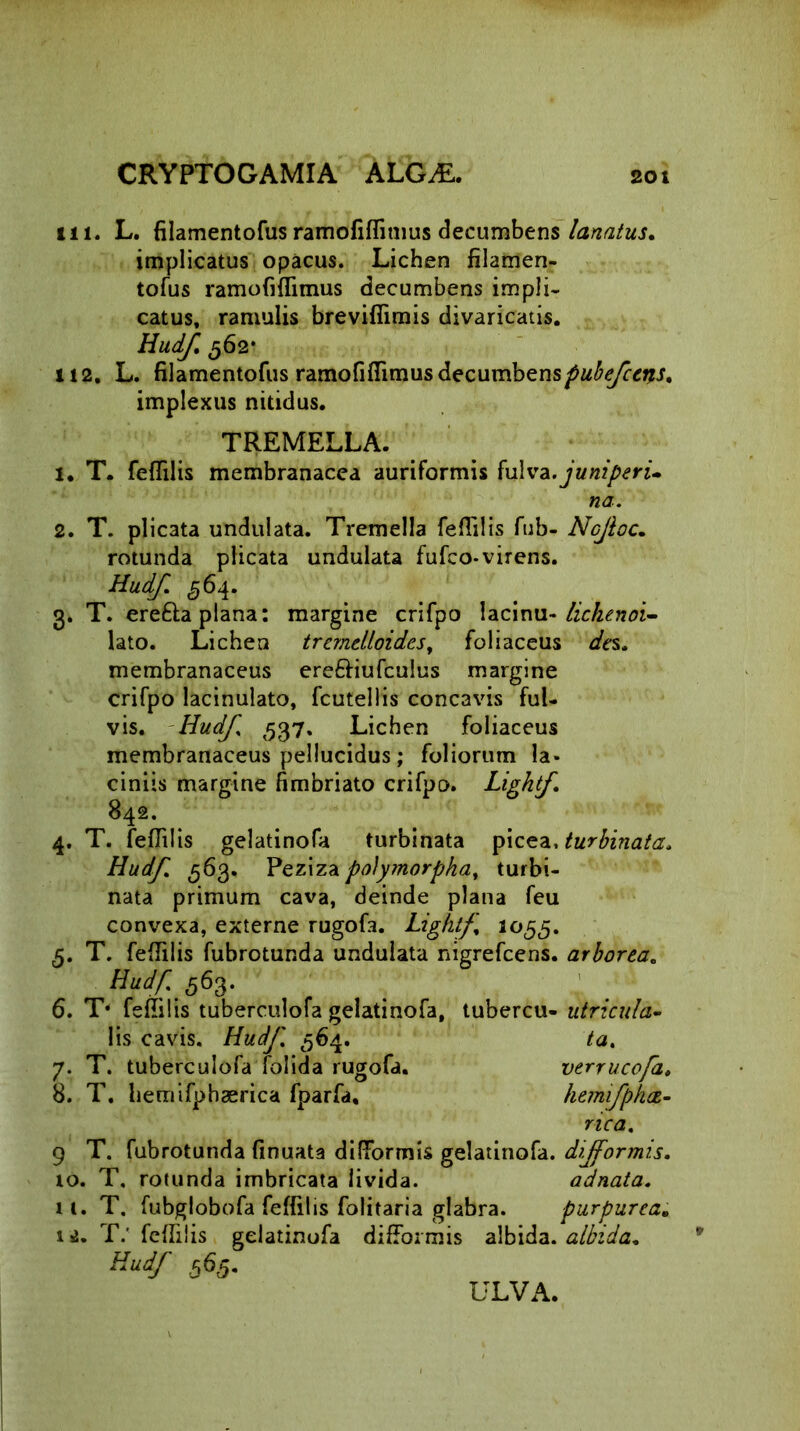 CRYPTOGAMIA ALGÆ. 201
111. L. filamentoſus ramoſiſſimus decumbens lanatus.
implicatus opacus. Lichen filamen-
toſus ramoſiſſimus decumbens impli-
catus, ramulis breviſſimis divaricatis.
Hudſ. 562.
112. L. filamentoſus ramoſiſſimus decumbens pubeſcens.
implexus nitidus.
TREMELLA.
1. T. ſeſſilis membranacea auriformis fulva. juniperi-
na.
2. T. plicata undulata. Tremella ſeſſilis ſub- Noſtoc.
rotunda plicata undulata fuſco-virens.
Hudſ. 564.
3. T. erecta plana: margine criſpo lacinu- lichenoi-
lato. Lichen tremelloides, foliaceus des.
membranaceus erectiuſculus margine
criſpo lacinulato, ſcutellis concavis ful-
vis. Hudſ. 537. Lichen foliaceus
membranaceus pellucidus; foliorum la-
ciniis margine fimbriato criſpo. Lightf.
842.
4. T. ſeſſilis gelatinoſa turbinata picea. turbinata.
Hudſ. 563. Peziza polymorpha, turbi-
nata primum cava, deinde plana ſeu
convexa, externe rugoſa. Lightf. 1055.
5. T. ſeſſilis ſubrotunda undulata nigreſcens. arborea.
Hudſ. 563.
6. T. ſeſſilis tuberculoſa gelatinoſa, tubercu- utricula-
lis cavis. Hudſ. 564. ta.
7. T. tuberculoſa ſolida rugoſa. verrucoſa.
8. T. hemiſphærica ſparſa. hemiſphæ-
rica.
9 T. ſubrotunda ſinuata difformis gelatinoſa. difformis.
10. T. rotunda imbricata livida. adnata.
11. T. ſubgloboſa ſeſſilis ſolitaria glabra. purpurea.
12. T. ſeſſilis gelatinoſa difformis albida. albida.
Hudſ 565.
ULVA.